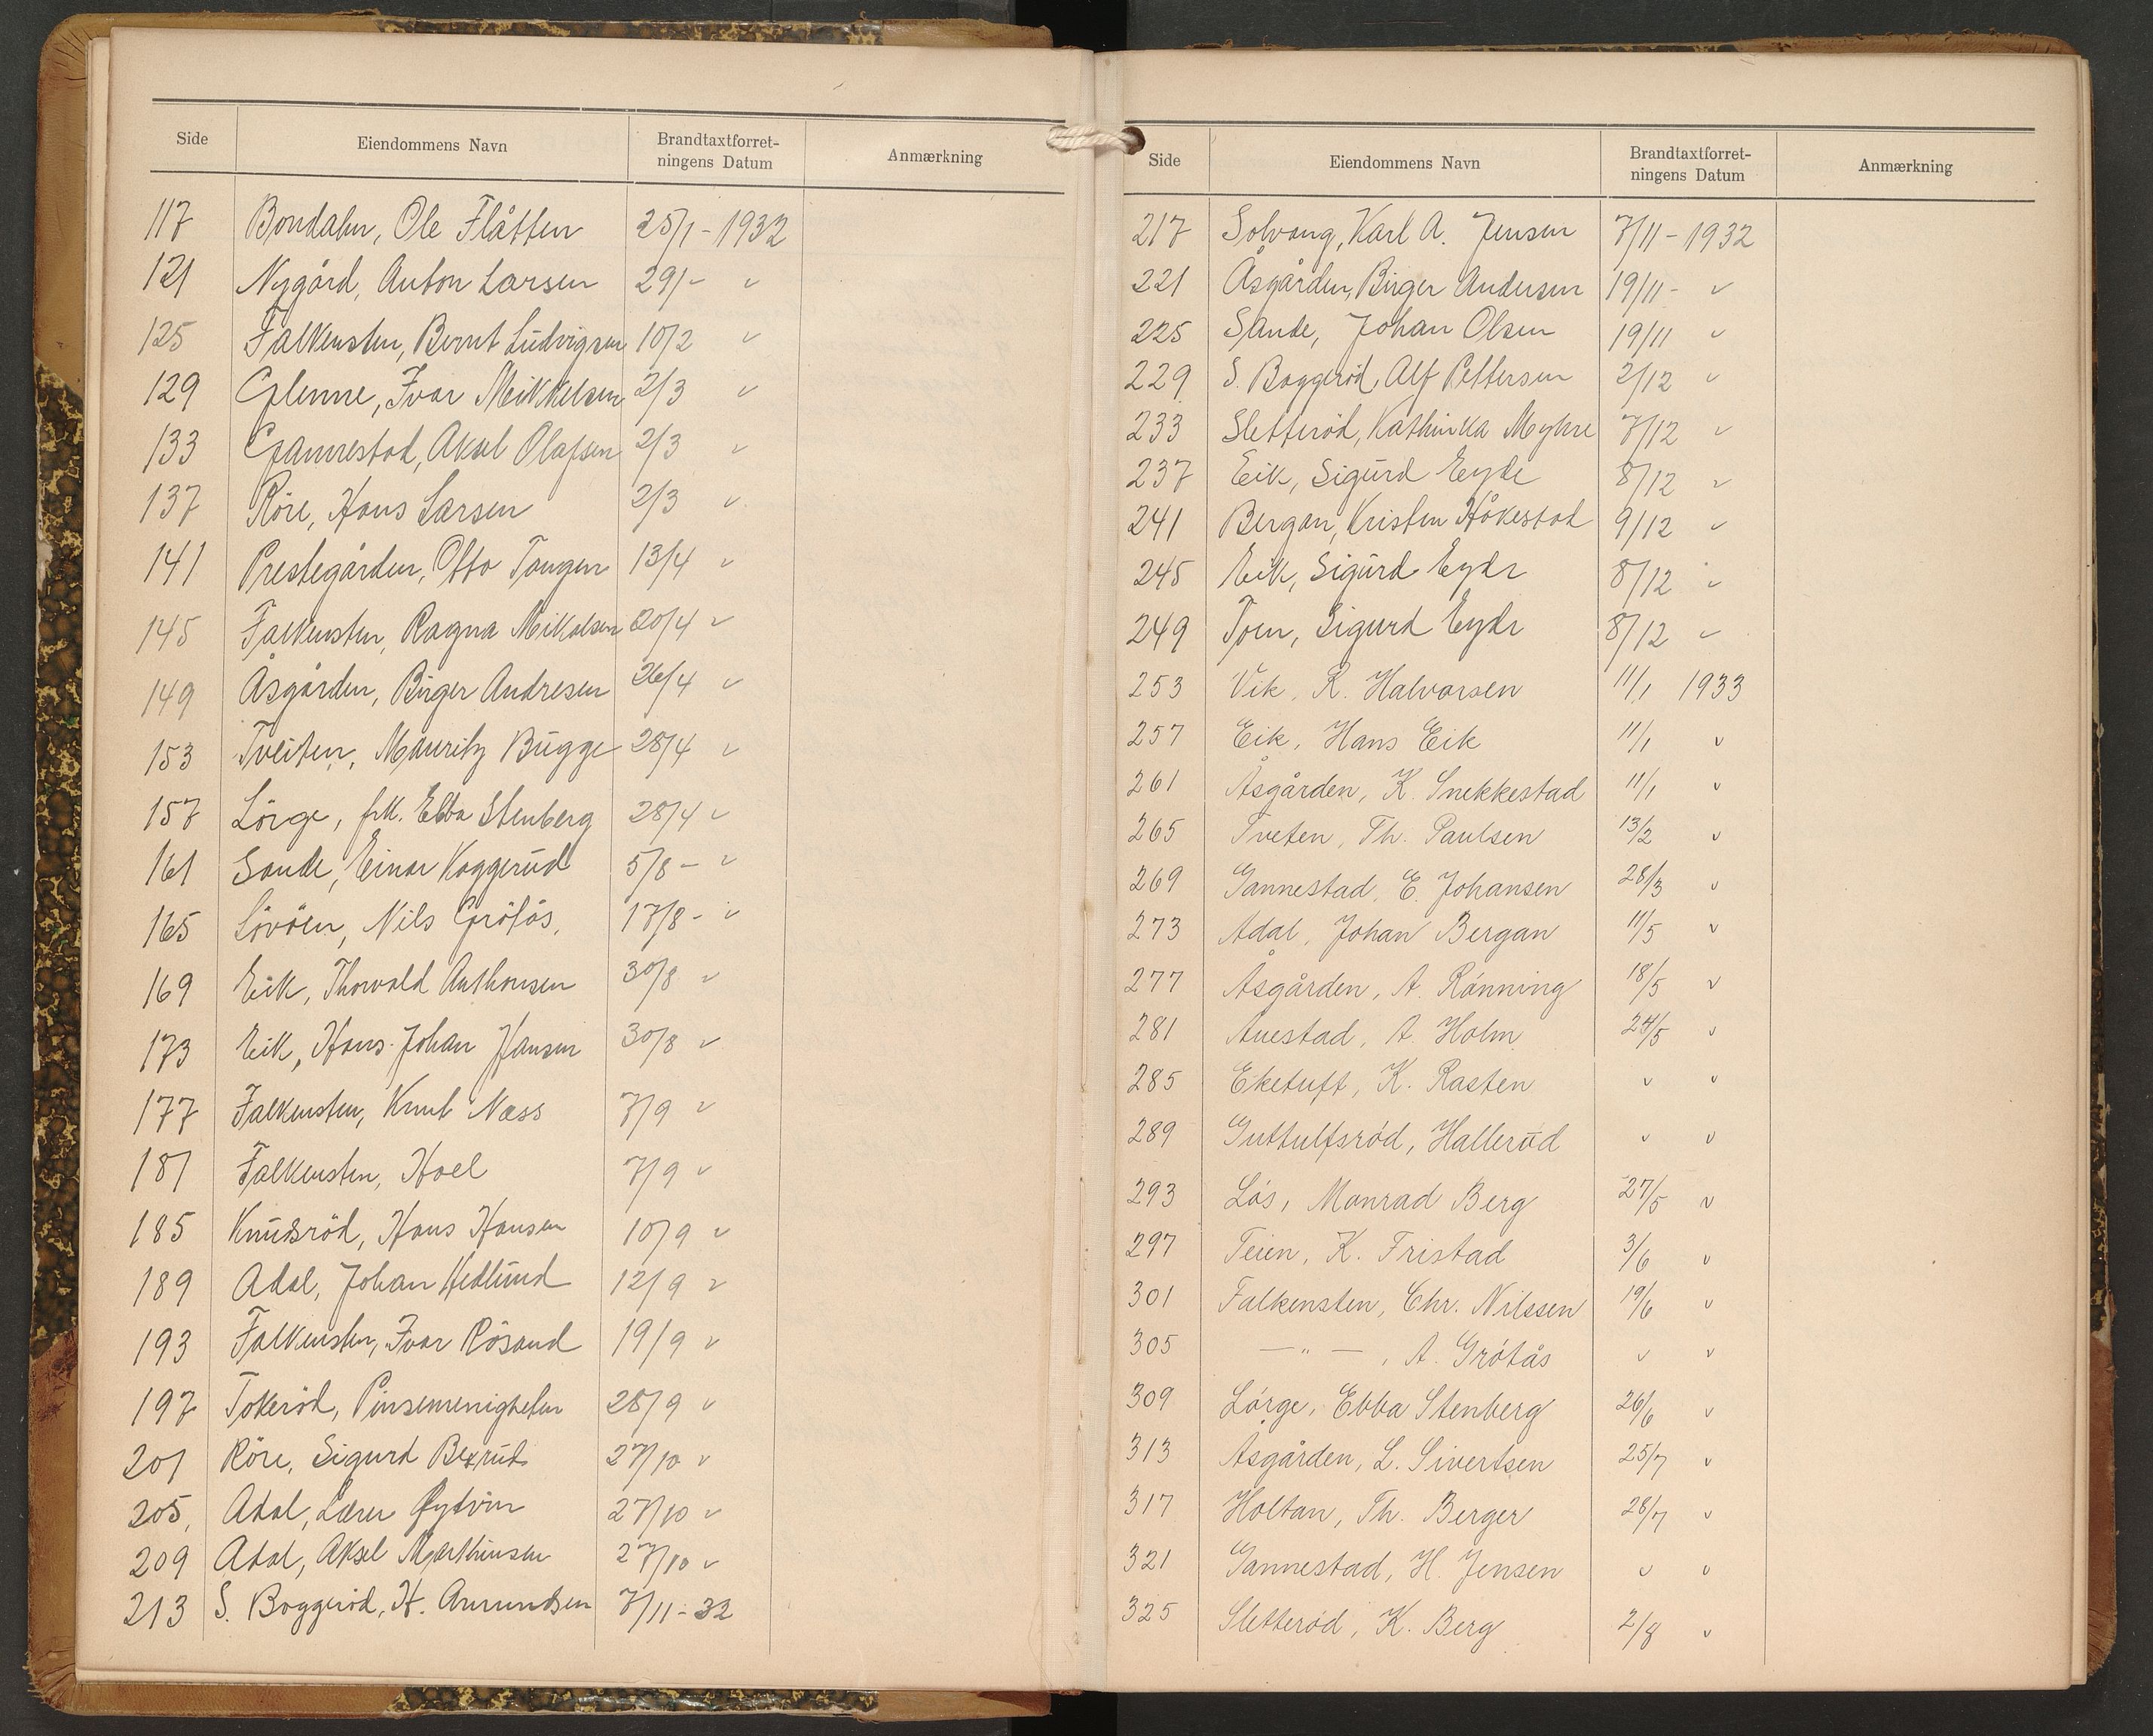 Side Eiendommens Navn Brandtaxtforret-
ningens Datum Anmærkning
117 Bondalen, Ole Flåtten 25/1 - 1932
121 Nygård, Anton Larsen 29/- "
125 Falkensten, Bernt Ludvigsen 10/2 "
129 Glenne, Ivar Mikkelsen 2/3 "
133 Gannestad, Aksel Olafsen 2/3 "
137 Röre, Hans Larsen 2/3 "
141 Prestegården, Otto Tangen 13/4 "
145 Falkensten, Ragna Mikalsen 20/4 "
149 Åsgården, Birger Andresen 26/4 "
153 Tveiten, Mauritz Bugge 28/4 "
157 Lörge, frk. Ebba Stenberg 28/4 "
161 Sande, Einar Koggerud 5/8 - "
165 Lövöen, Nils Grötås, 17/8 - "
169 Eik, Thorvald Anthonsen 30/8 "
173 Eik, Hans Johan Hansen 30/8 "
177 Falkensten, Knut Næss 7/9 "
181 Falkensten, Hoel 7/9 "
185 Knudsröd, Hans Hansen 10/9 "
189 Adal, Johan Hedlund 12/9 "
193 Falkensten, Ivar Rösand 19/9 "
197 Tokeröd, Pinsemenigheten 28/9 "
201 Röre, Sigurd Bexrud 27/10 "
205, Adal, Lærer Øydvin 27/10 "
209 Adal, Aksel Marthinsen 27/10 "
213 S. Boggeröd, H. Amundsen 7/11 - 32
Side Eiendommens Navn Brandtaxtforret-
ningens Datum Anmærkning
217 Solvang, Karl A. Jensen 7/11 - 1932
221 Åsgården, Birger Andersen 19/11 - "
225 Sande, Johan Olsen 19/11 "
229 S. Boggeröd, Alf Pettersen 2/12 "
233 Sletteröd, Kathinka Myhre 7/12 "
237 Eik, Sigurd Eyde 8/12 "
241 Bergan, Kristen Håkestad 9/12 "
245 Eik, Sigurd Eyde 8/12 "
249 Tom, Sigurd Eyde 8/12 "
253 Vik, R. Halvorsen 11/1 1933
257 Eik, Hans Eik 11/1 "
261 Åsgården, K. Snekkestad 11/1 "
265 Tveten, Th. Paulsen 13/2 "
269 Gannestad, E. Johansen 28/3 "
273 Adal, Johan Bergan 11/5 "
277 Åsgården, A. Rönning 18/5 "
281 Auestad, A. Holm 24/5 "
285 Eketuft, K. Rasten " "
289 Guttulfsröd, Hallerud " "
293 Lös, Monrad Berg 27/5 "
297 Teien, K. Fristad 3/6 "
301 Falkensten, Chr. Nilssen 19/6 "
305 — " — , A. Grötås " "
309 Lörge, Ebba Stenberg 26/6 "
313 Åsgården, L. Sivertsen 25/7 "
317 Holtan, Th. Berger 28/7 "
321 Gannestad, H. Jensen " "
325 Sletteröd, K. Berg 2/8 "